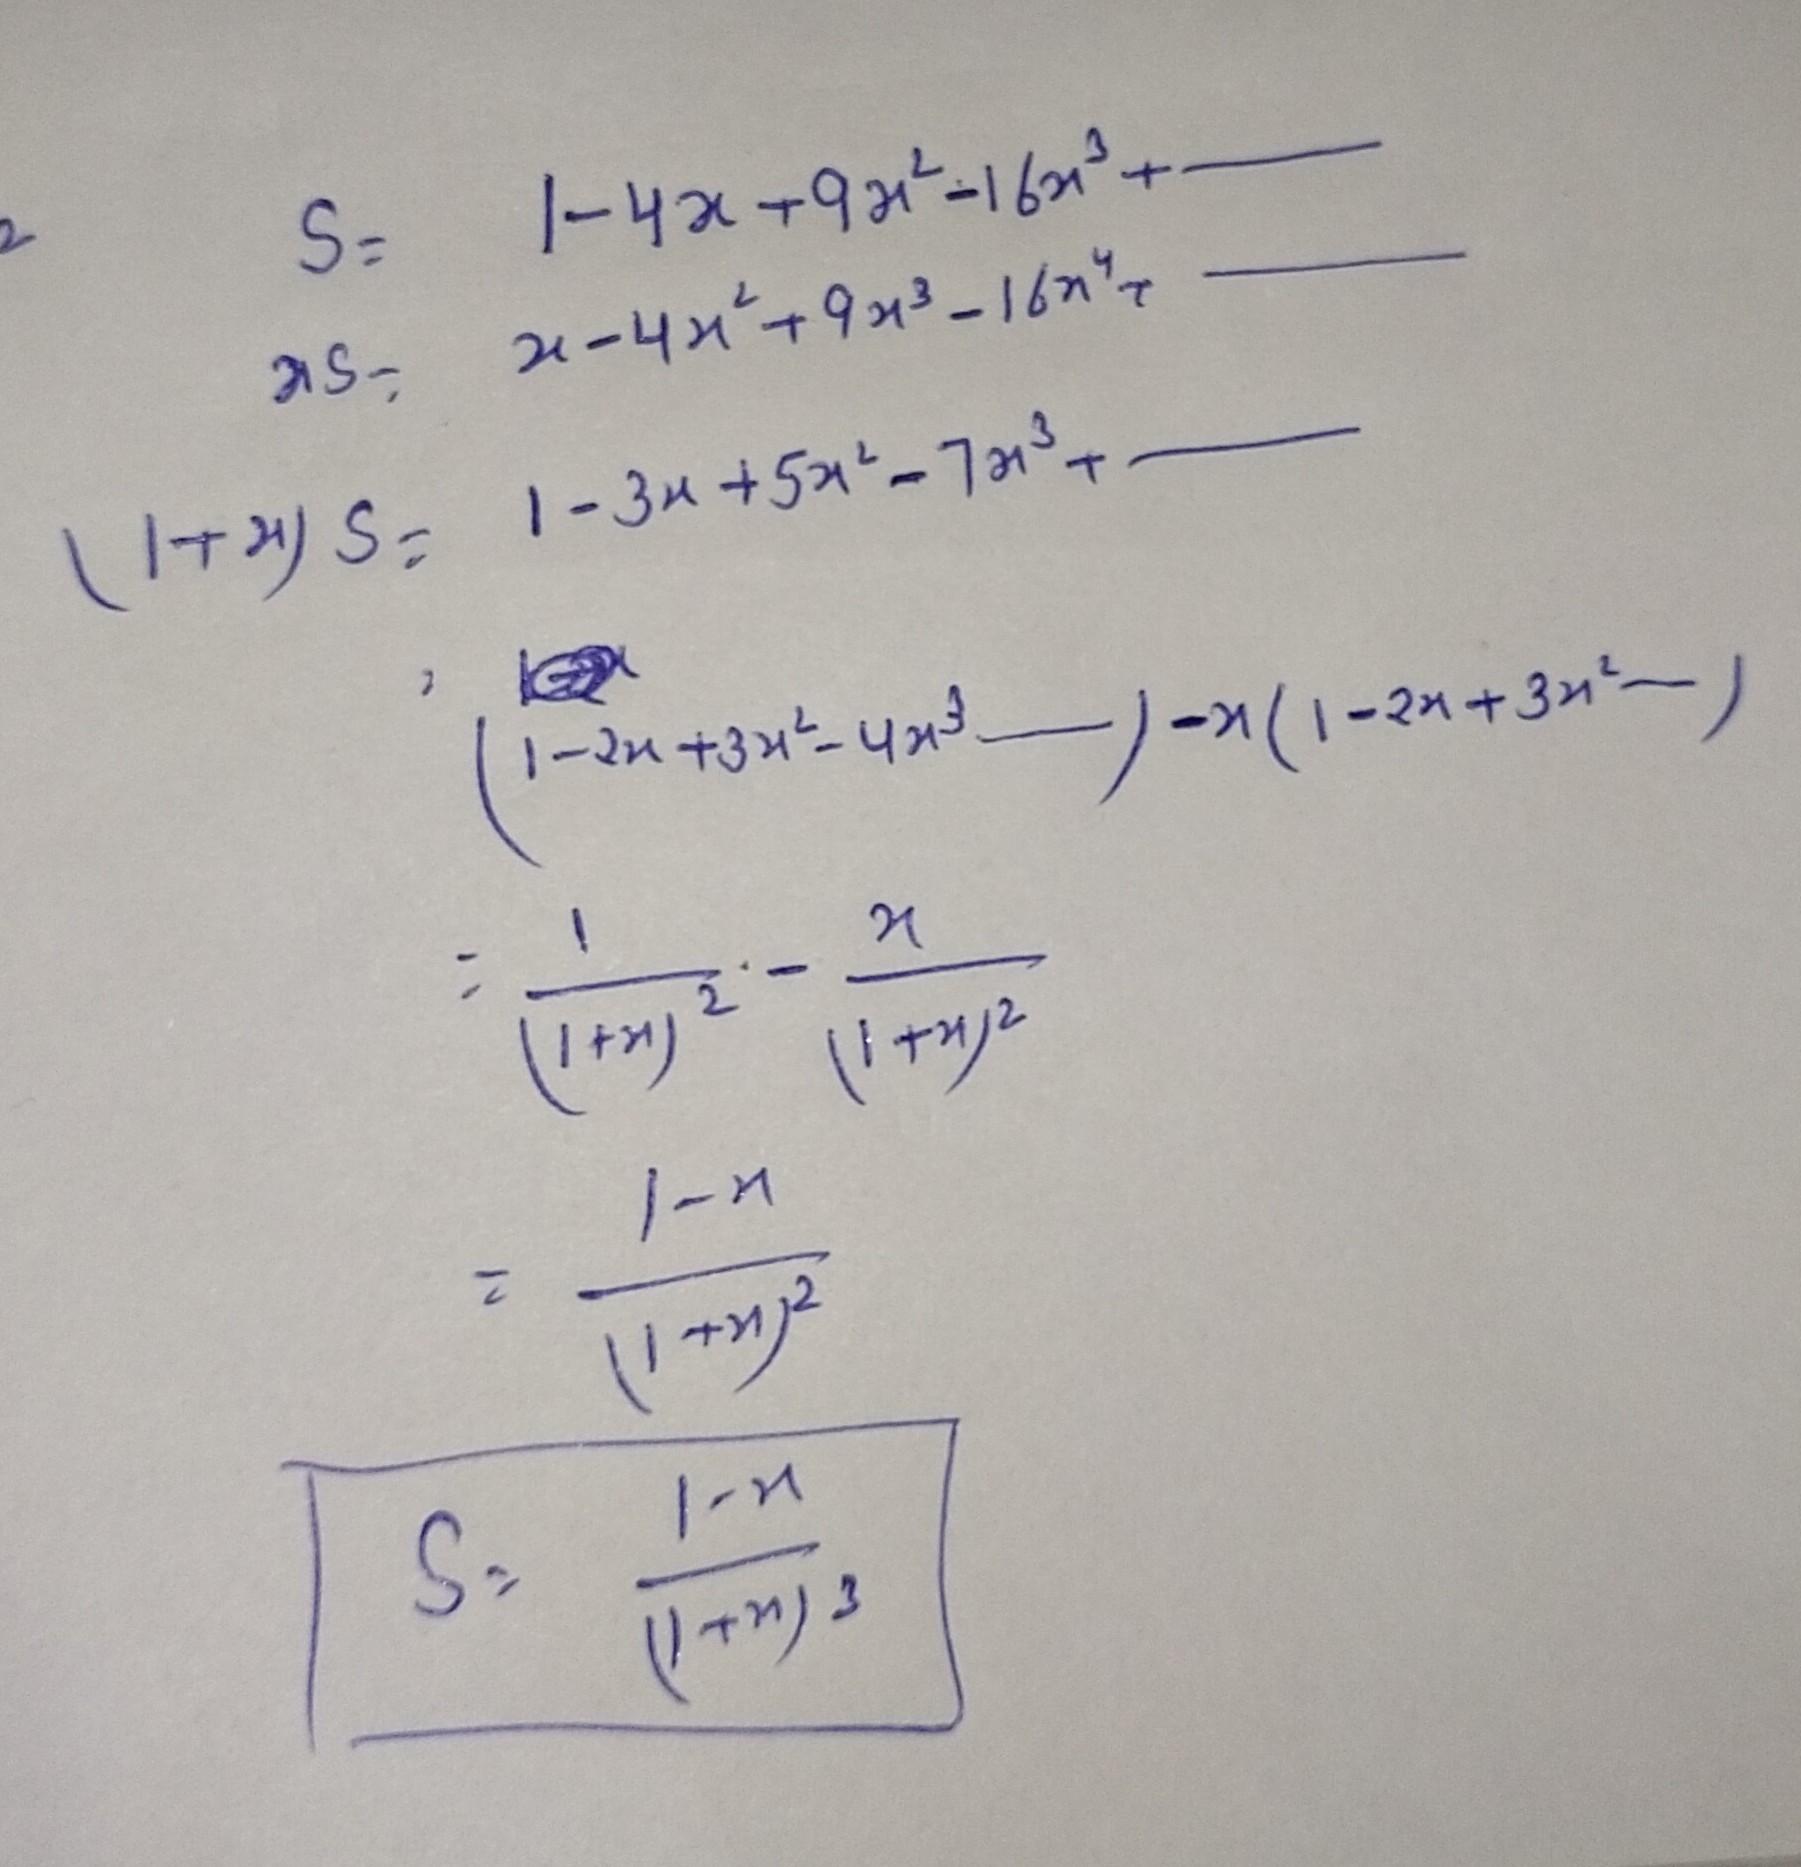 S = 1-4x+9x²-16x³+——
xS = x-4x²+9x³-16x⁴+ ——
(1+x) S = 1-3x+5x²-7x³+——
= (1-2x+3x²-4x³——)-x(1-2x+3x²—)
= 1/(1+x)² - x/(1+x)²
= 1-x/(1+x)²
S = 1-x/(1+x)³